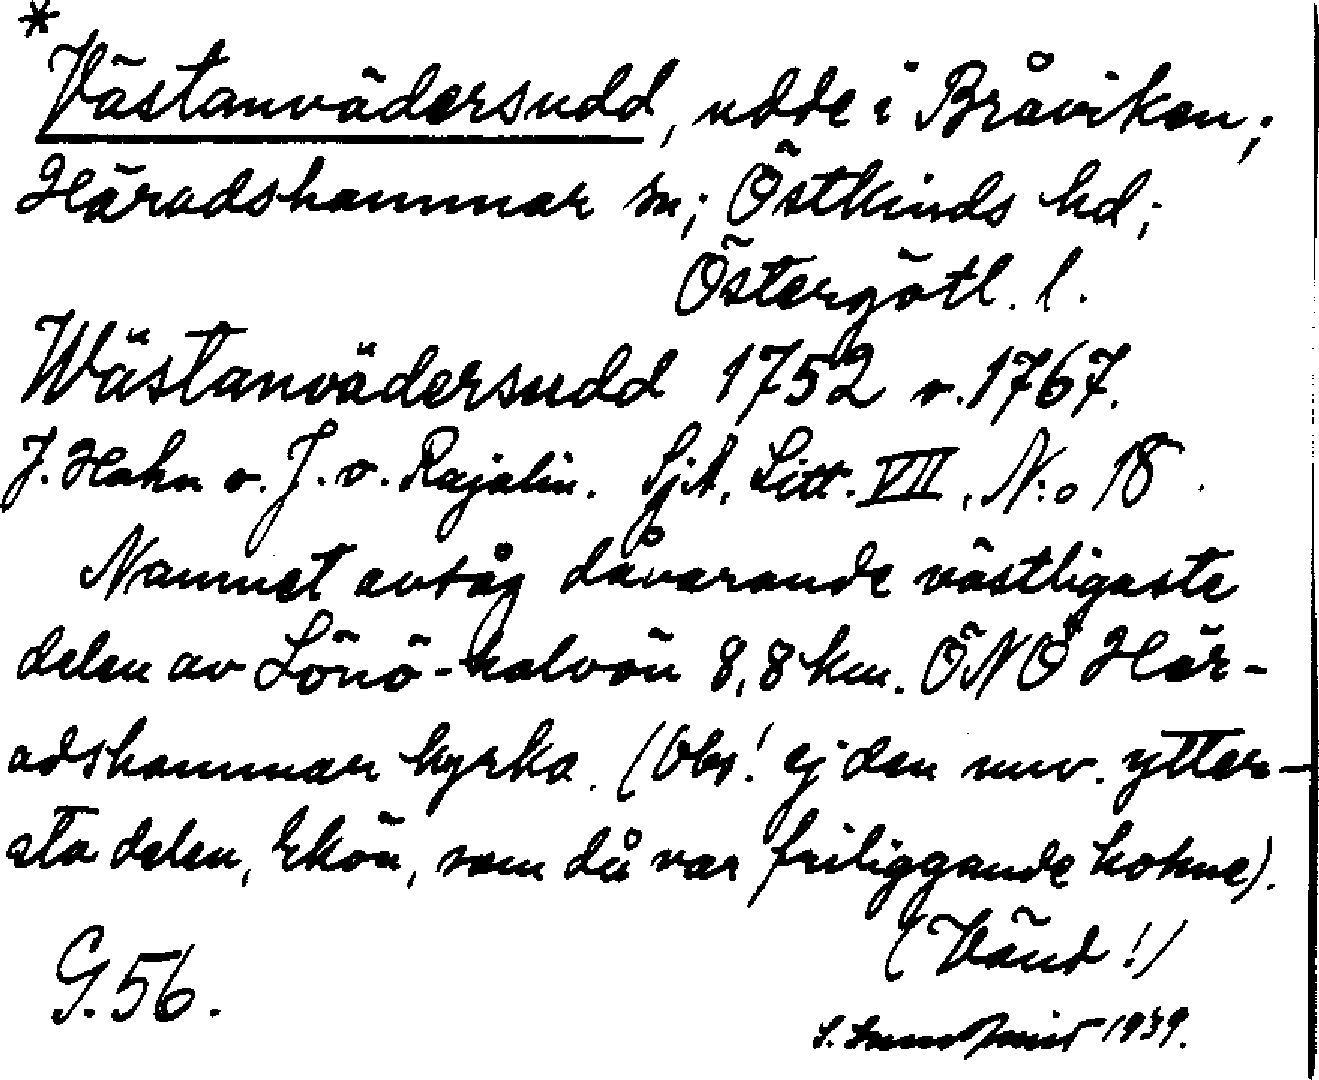 *
Västanvädersudd, udde i Bråviken;
Häradshammar sn; Östkinds hd;
Östergötl. l.
Wästanvädersudd 1752 o. 1767.
J. Hahn o. J. v. Rajalin. SjA, Litt. VII, N:o 18.
Namnet avsåg dåvarande västligaste
delen av Lönö-halvön 8,8 km. ÖNÖ Här-
adshammar kyrka. (Obs! ej den nuv. ytter-
sta delen, Ekön, som då var friliggande holme).
(Vänd!)
G. 56.
S. 1939.